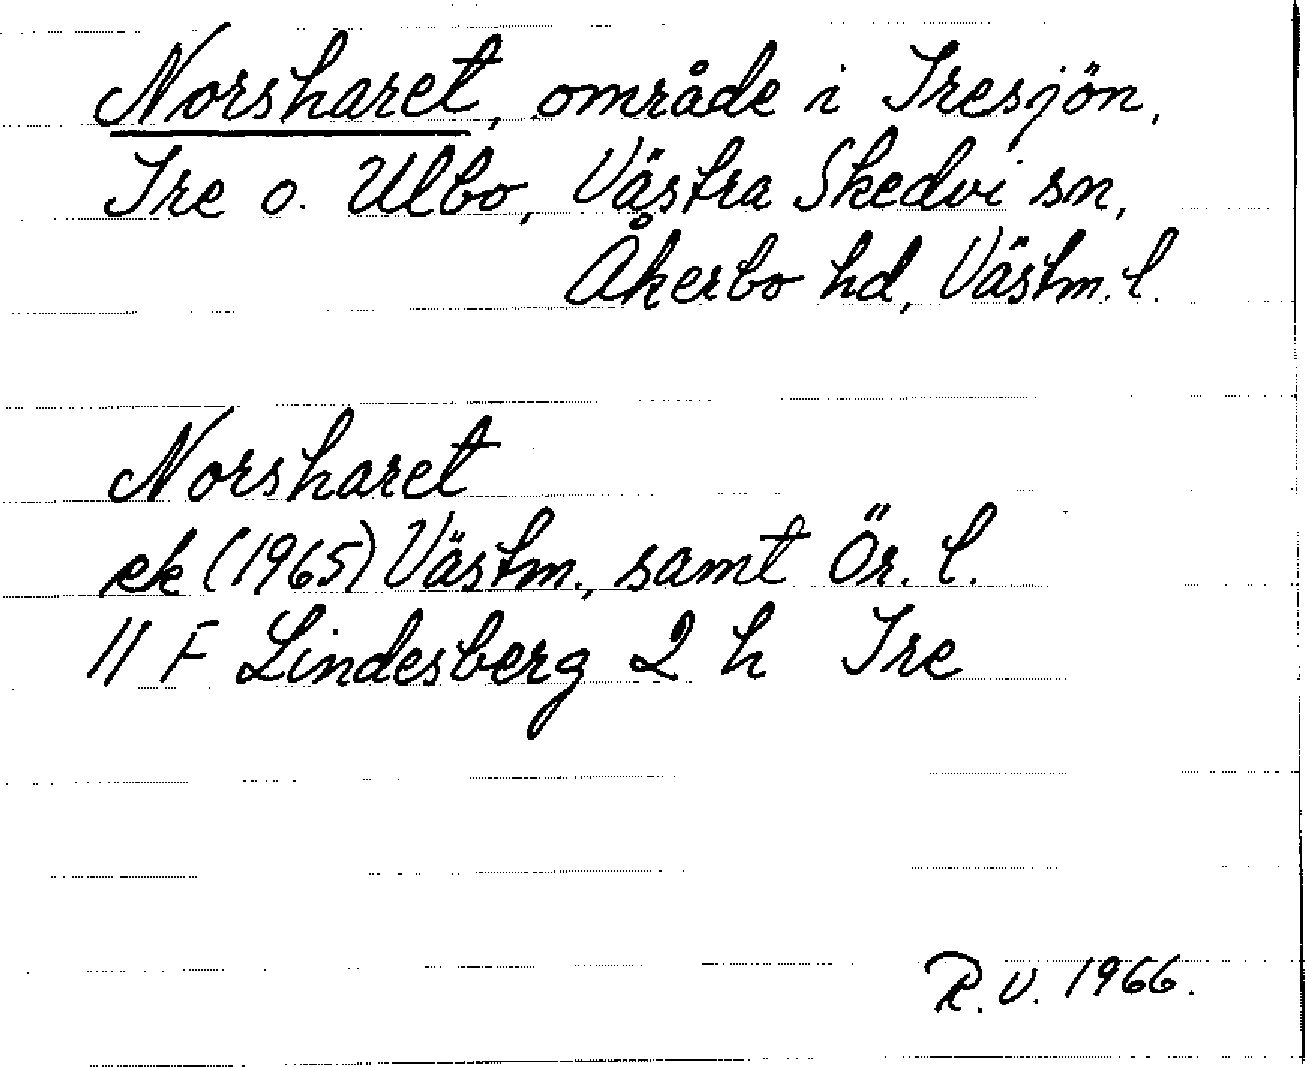 Norsharet, område i Iresjön,
Ire o. Ulbo, Västra Skedvi sn,
Åkerbo hd, Västm. l.
Norsharet
ek (1965) Västm., samt Ör. l.
11 F Lindesberg 2 h Ire
R.V. 1966.